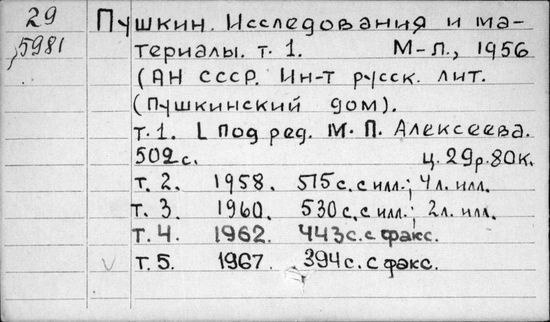 29
5981
Пушкин. Исследования и ма-
териалы. т. 1. М-Л., 1956
(АН СССР. Ин-т русск. лит.
(Пушкинский дом).
т.1. [ Под ред. М. П. Алексеева.
502 с. ц. 29р.80к.
т. 2. 1958. 515 с. с илл.; 4л. илл.
т. 3. 1960. 530 с. с илл.; 2л. илл.
т. 4. 1962. 443 с. с факс.
v т. 5. 1967. 394 с. с факс.